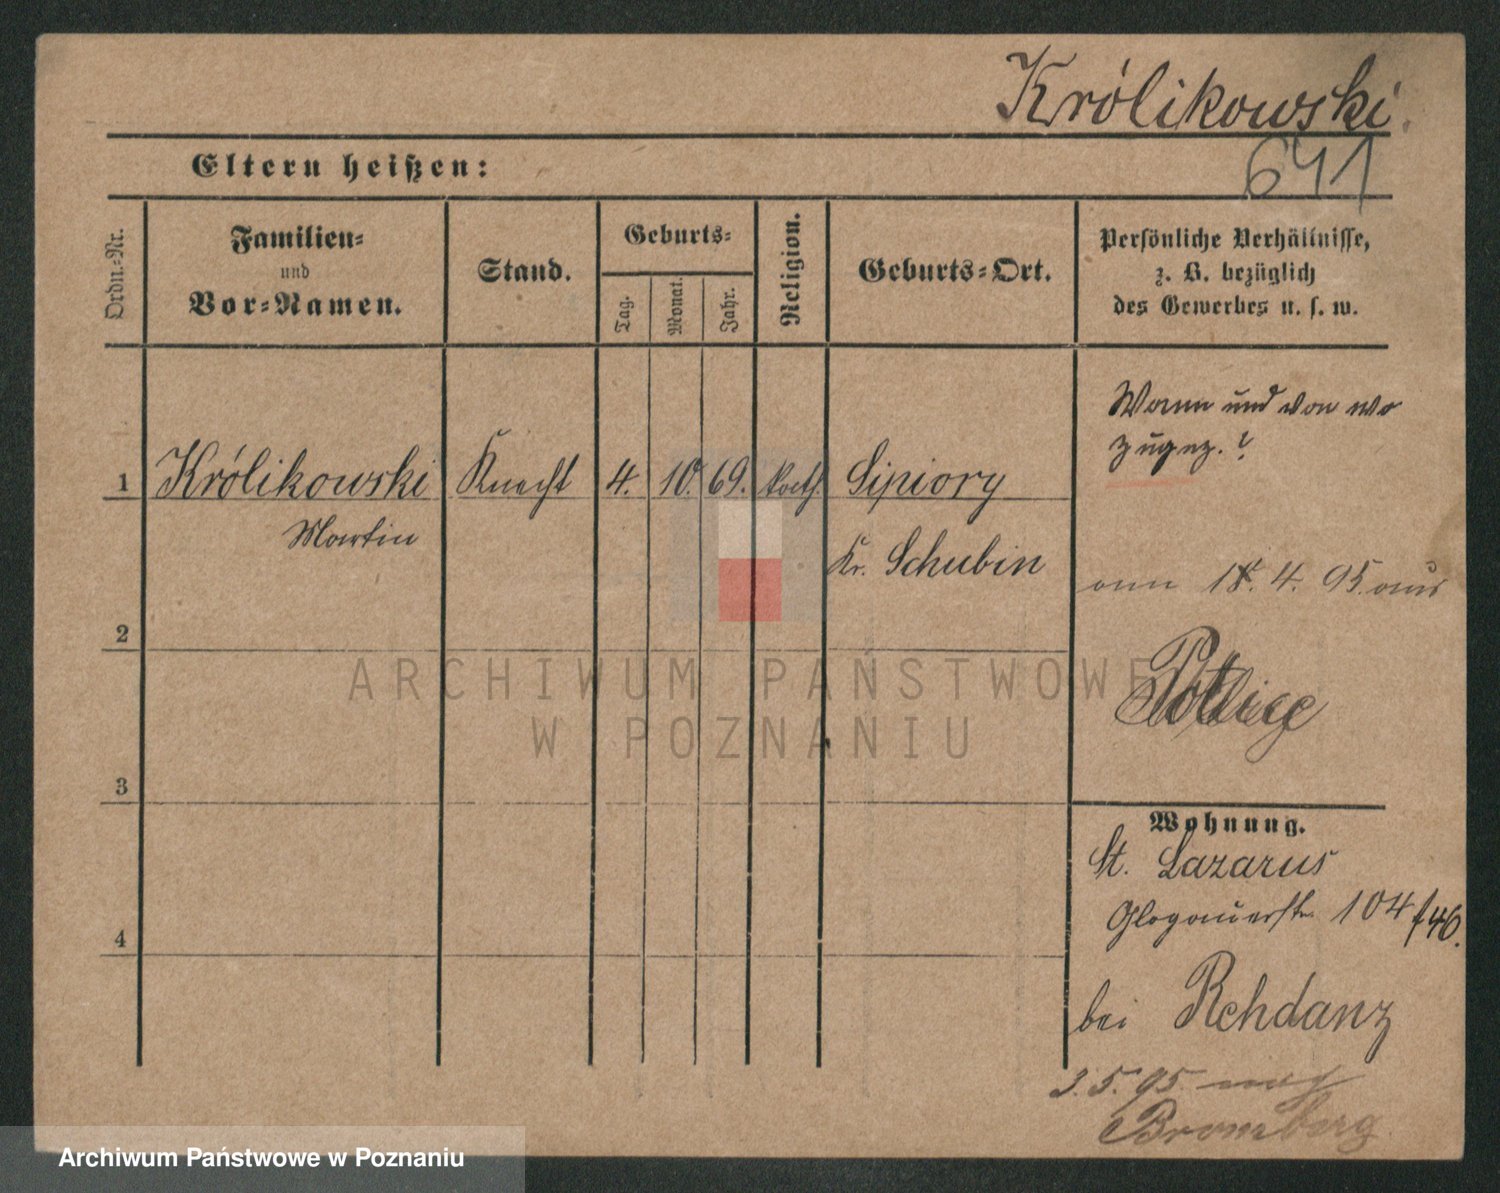 Królikowski.
641
Eltern heißen:
Ordn.-Nr.
Familien-
und
Vor-Namen.
Stand.
Geburts-
Tag.
Monat.
Jahr.
Religion.
Geburts-Ort.
Persönliche Verhältnisse,
z. B. bezüglich
des Gewerbes u. s. w.
Wann und von wo
zugez.?
1 Królikowski Knecht 4. 10. 69. kath. Sipiory
Martin
Kr. Schubin
am 18. 4. 95. aus
2
3
4
Wohnung.
St. Lazarus
Glogauerstr. 104/46.
bei Rehdanz
3. 5. 95 nach
Bromberg
ARCHIWUM PAŃSTWOWE
W POZNANIU
Archiwum Państwowe w Poznaniu